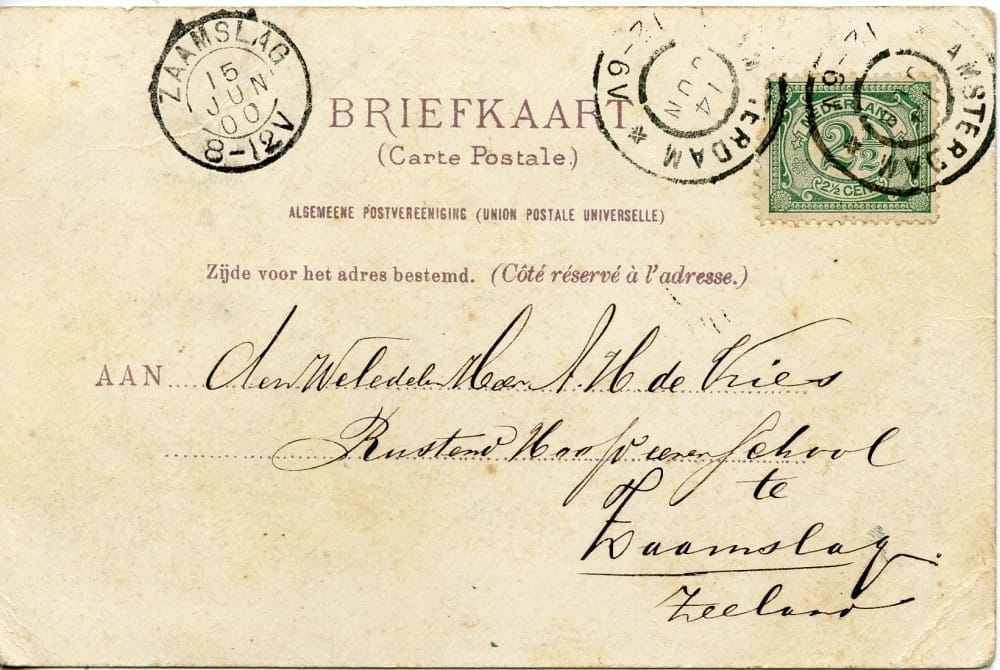 ZAAMSLAG
15
JUN
00
8-12V
AMSTERDAM
12-6V
14
JUN
AMSTERDAM
12-6
NEDERLAND
2½
2½ CENT
BRIEFKAART
(Carte Postale.)
ALGEMEENE POSTVEREENIGING (UNION POSTALE UNIVERSELLE)
Zijde voor het adres bestemd. (Côté réservé à l'adresse.)
AAN Den Weledelen Heer A. H. de Vries
Rustend Hoofd eener School
te
Zaamslag.
Zeeland